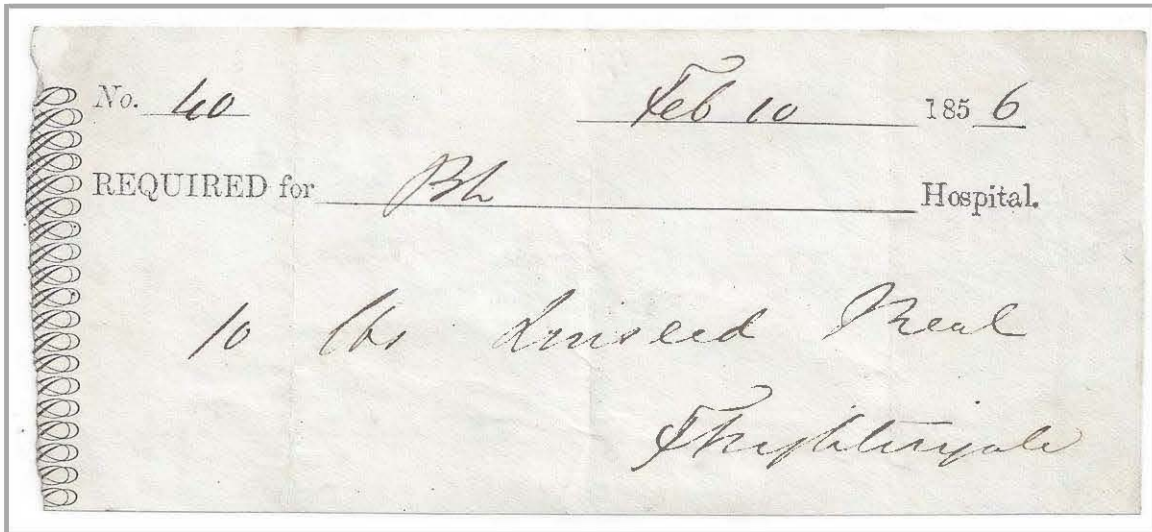 No. 40 Feb 10 1856
REQUIRED for Bh Hospital.
10 lbs Linseed Meal
F Nightingale